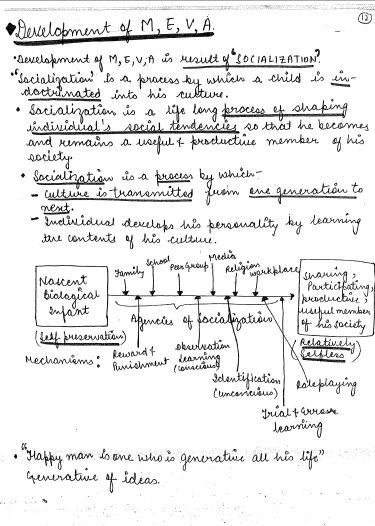 12
Development of M, E, V, A.
Development of M, E, V, A is result of "SOCIALIZATION".
"Socialization" is a process by which a child is in-
doctrinated into his culture.
• Socialization is a life long process of shaping
individual's social tendencies so that he becomes
and remains a useful & productive member of his
society.
• Socialization is a process by which-
- Culture is transmitted from one generation to
next.
- Individual develops his personality by learning
the contents of his culture.
Nascent
Biological
Infant
(Self preservation)
Family
School
Peer Group
Media
Religion
Workplace
Agencies of Socialization
Sharing,
Participating,
productive,
useful member
of his society
(Relatively
Selfless)
Mechanisms:
Reward &
Punishment
Observation
Learning
(conscious)
Identification
(unconscious)
Roleplaying
Trial & Error
learning
• "Happy man is one who is generative all his life"
Generative of ideas.